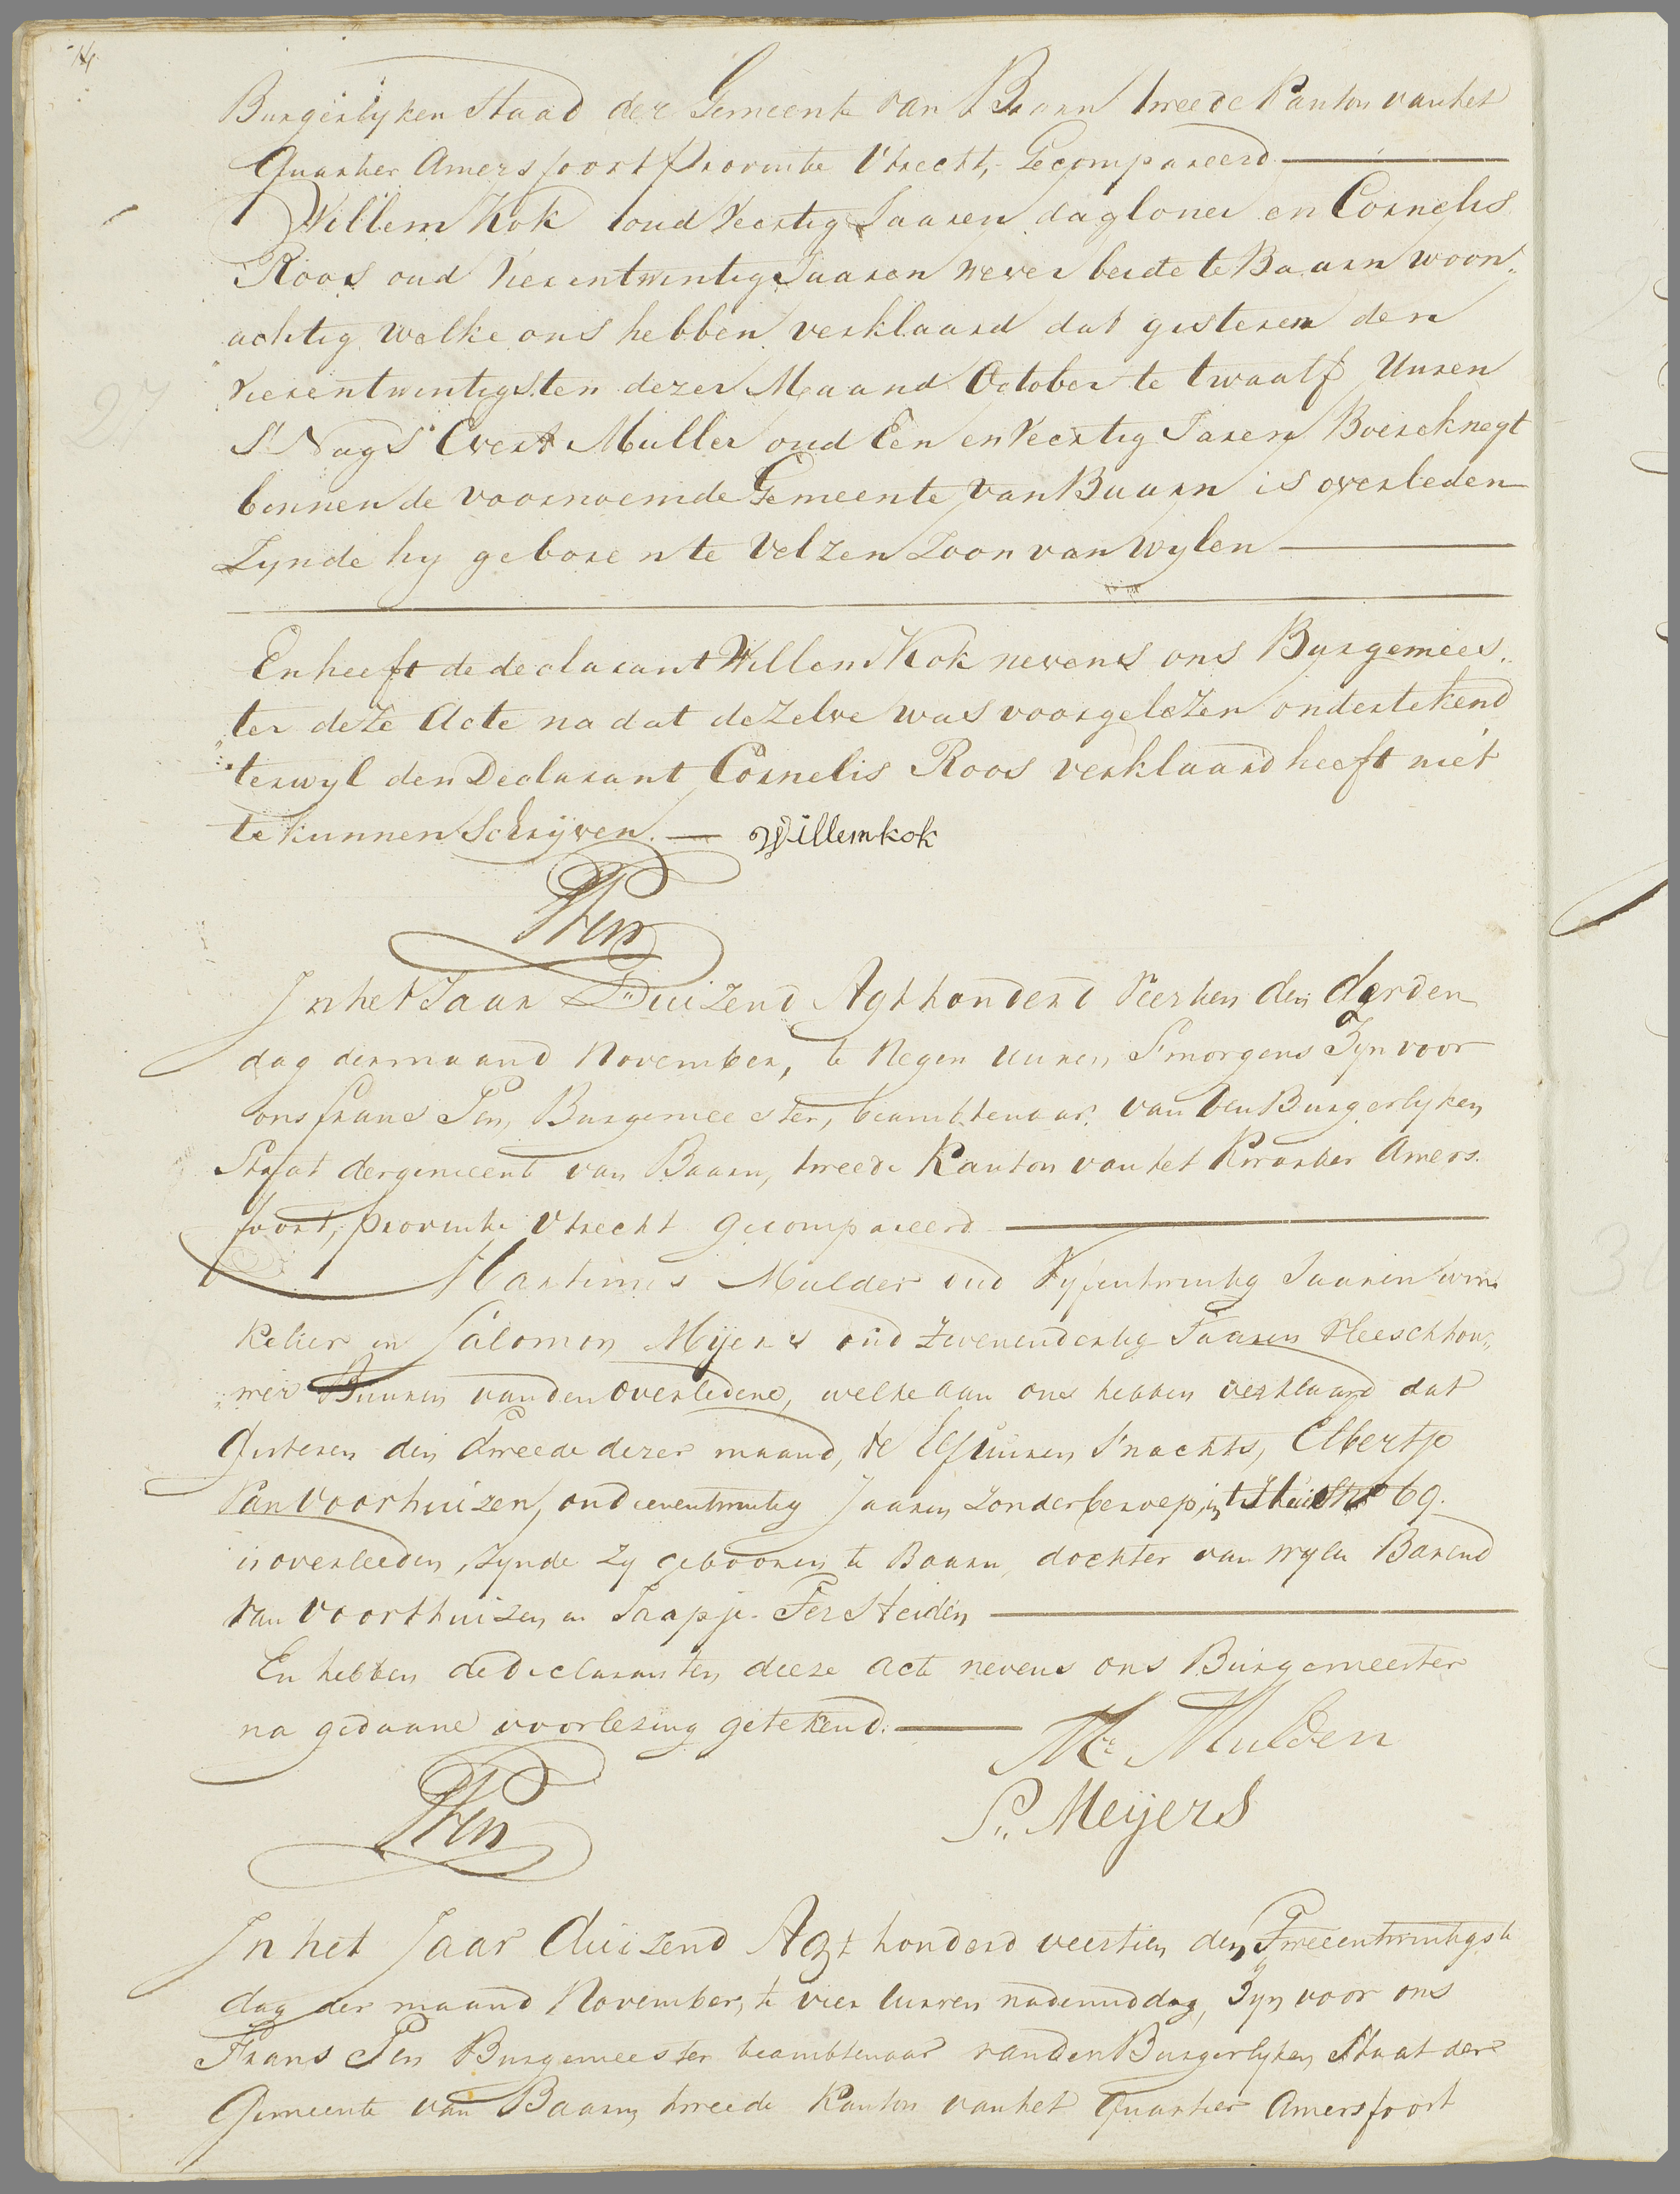 14
Burgerlyken Staad der Gemeente van Baarn tweede Canton van het
Quartier Amersfoort Provintie Utrecht, Gecompareerd
Willem Kok oud Veertig Jaaren dagloner en Cornelis
Roos oud Vierentwintig Jaaren wever beide te Baarn woon„
achtig welke ons hebben verklaard dat gisteren den
vierentwintigsten dezer Maand October te twaalf Uuren
S'Nags Evert Muller oud Een en Veertig Jaren Boereknegt
binnen de voornoemde Gemeente van Baarn is overleden
Zynde hy geboren te Velzen Zoon van wylen
En heeft de declarant Willem Kok nevens ons Burgemees„
ter deze Acte na dat dezelve was voorgelezen ondertekend
terwyl den Declarant Cornelis Roos verklaard heeft niet
te kunnen Schryven. Willem kok
FPen
In het Jaar Duizend Agthonderd Veertien den derden
dag der maand November, te Negen uuren, S'morgens Zyn voor
ons Frans Pen, Burgemeester, beambtenaar van den Burgerlyken
Staat der gemeente van Baarn, tweede Kanton van het Kwartier Amers
foort, provintie Utrecht gecompareerd
Martinus Mulder oud Vyfentwintig Jaaren win
kelier en Salomon Mijers oud zevenendertig Jaaren Vleeschhou„
wer Buuren van den Overledene, welke aan ons hebben verklaard dat
Gisteren den Tweede dezer maand, te Elf uuren S'nachts, Elbertje
Van Voorhuizen, oud zeventwintig Jaaren zonder beroep, in t Huis No 69.
is overleeden, zynde zy gebooren te Baarn, dochter van wyle Barend
van Voorthuizen en Jaapje Ter Heiden
En hebben de declaranten deeze acte nevens ons Burgemeester
na gedaane voorlezing getekend.
Mr Mulder
S. Meijers
FPen
In het Jaar Duizend Agt honderd veertien den Tweeentwintigste
dag der maand November, te vier uuren nademiddag, Zyn voor ons
Frans Pen Burgemeester beambtenaar van den Burgerlyken Staat der
Gemeente van Baarn, tweede Kanton van het Quartier Amersfoort